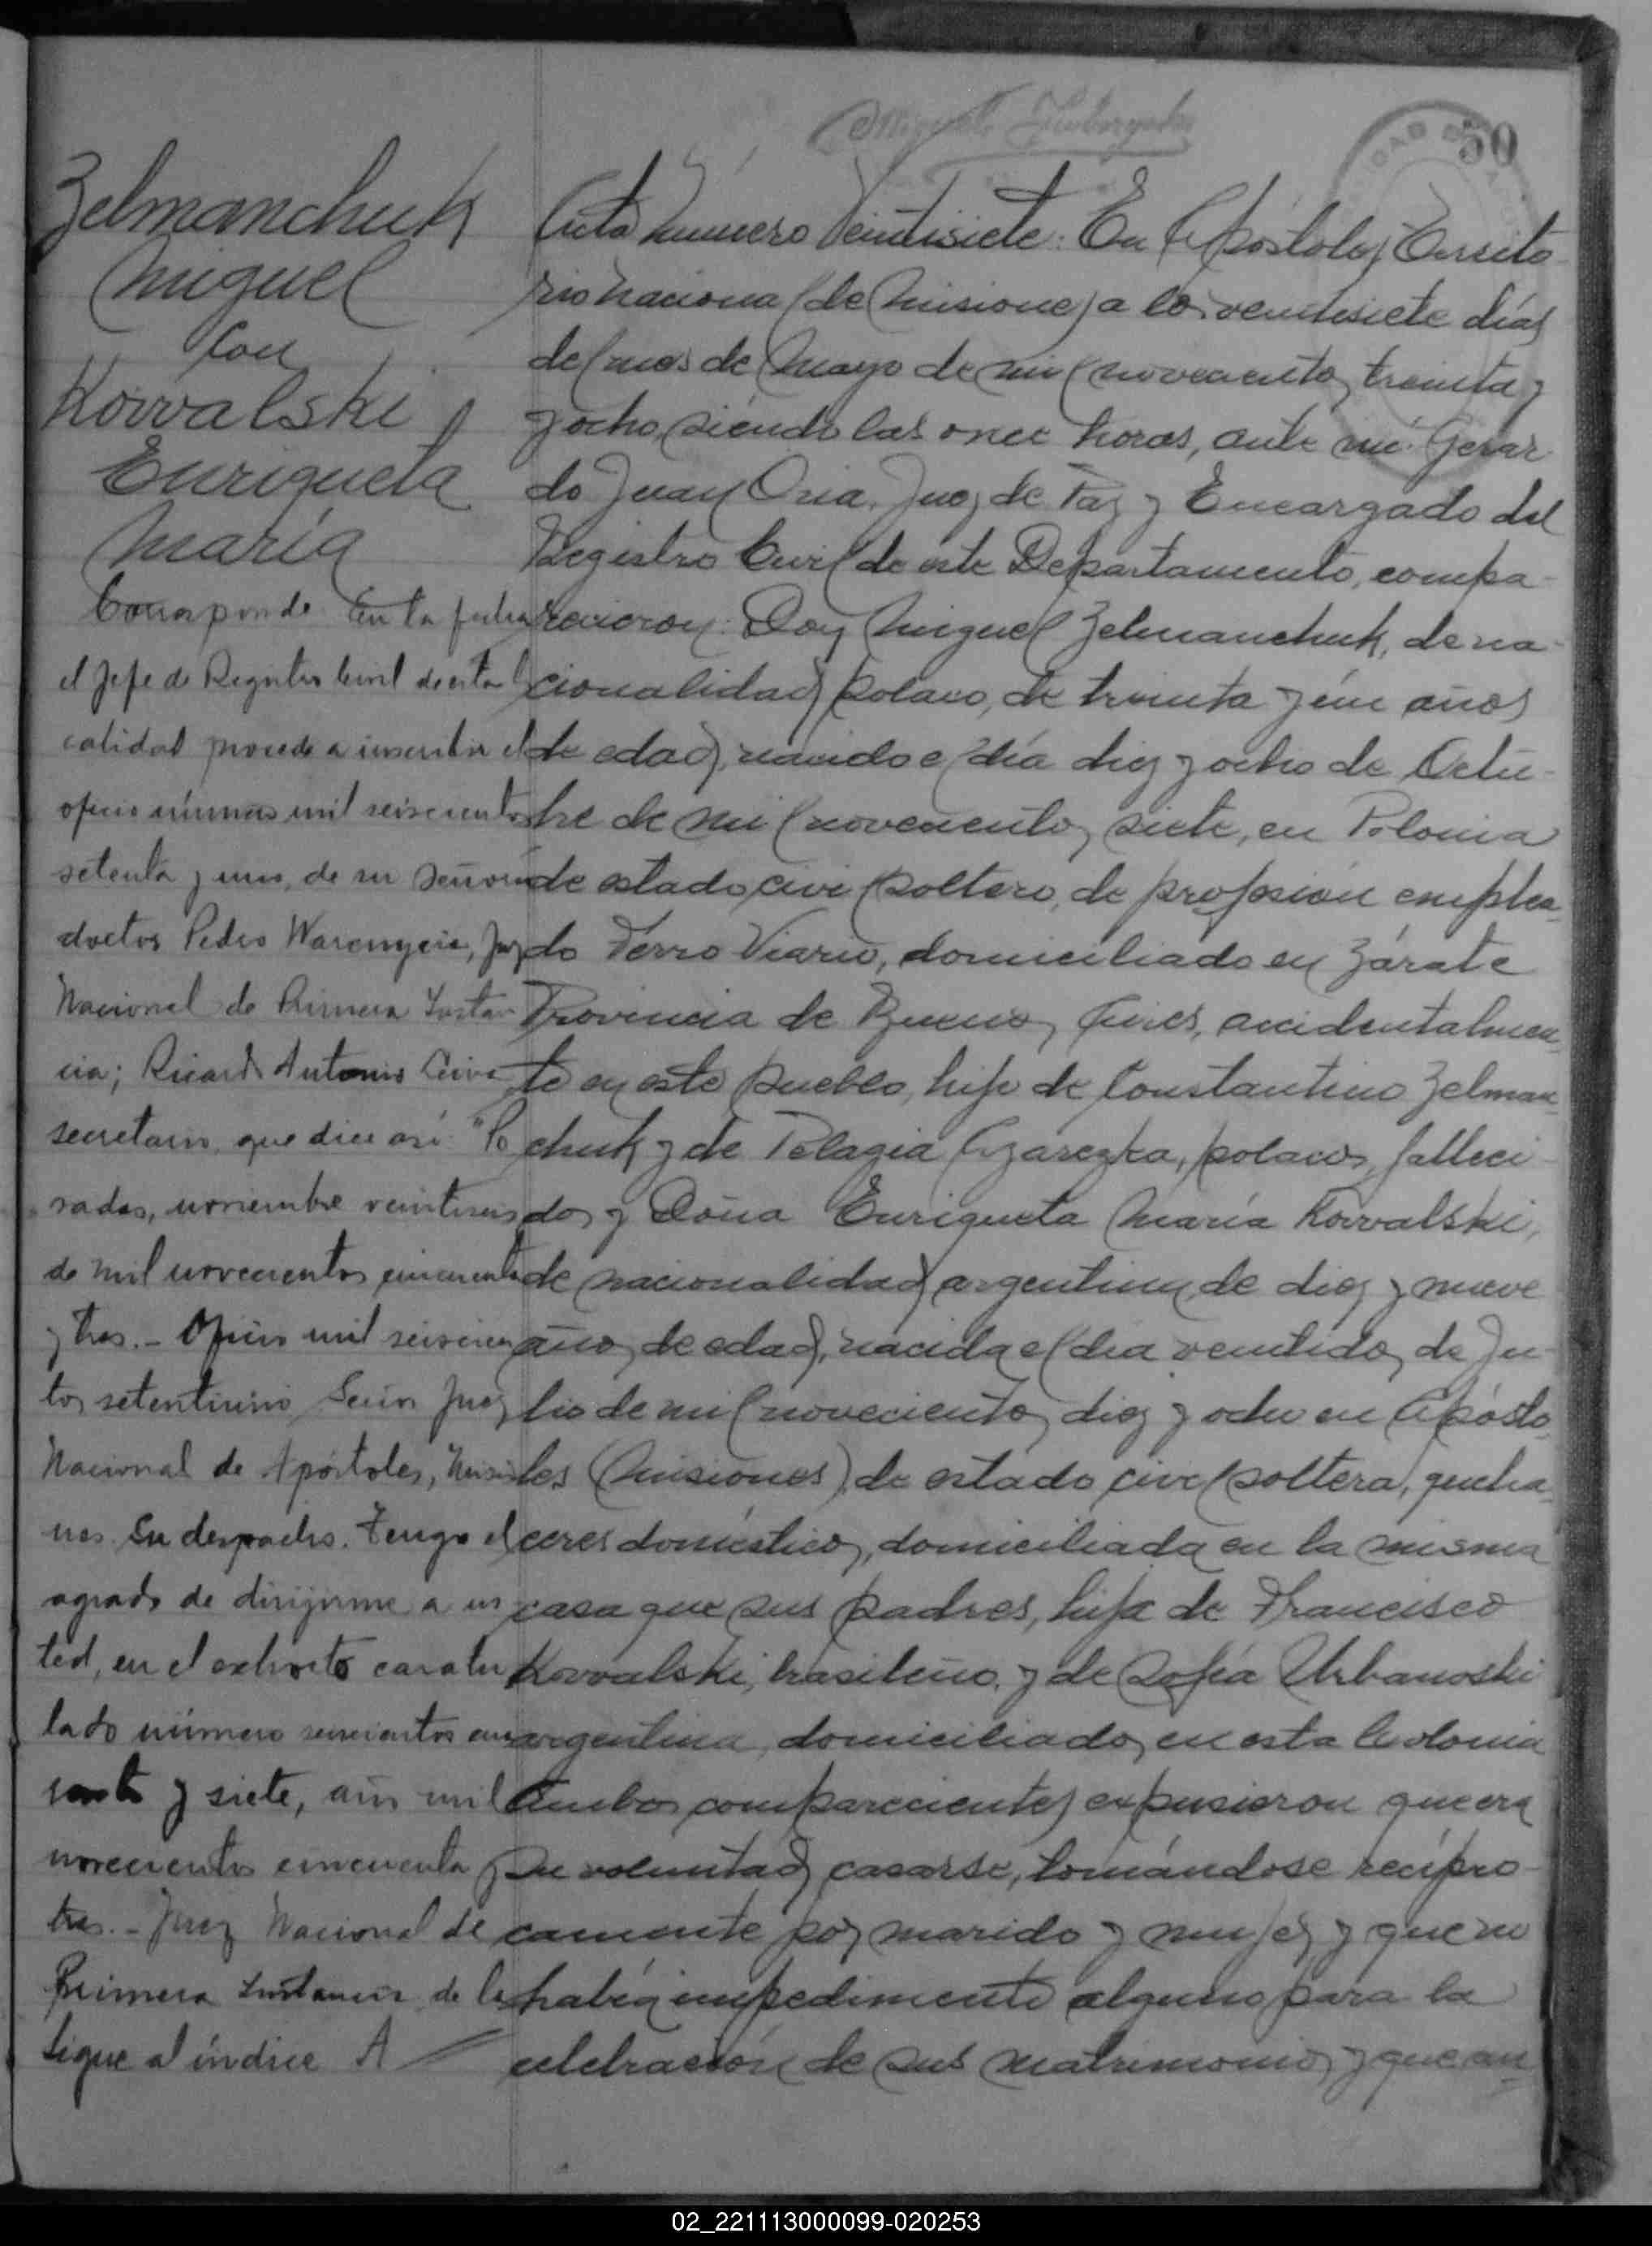 50
Zelmanchuk
Miguel
con
Kowalski
Enriqueta
María
Corresponde En la fecha
el Jefe de Registro Civil de esta lo
calidad procede a inscribir el
oficio número mil seiscientos
setenta y uno, de su Señoría
doctor Pedro Warenycia, Juez
Nacional de Primera Instan
cia; Ricardo Antonio
secretario, que dice así: "Po
sadas, noviembre veintiseis
de mil novecientos cincuenta
y tres.- Oficio mil seiscien
tos setentiuno Señor Juez
Nacional de Apóstoles, Misio
nes. Su despacho. Tengo el
agrado de dirigirme a us
ted, en el exhorto caratu
lado número seiscientos cin
cuenta y siete, año mil
novecientos cincuenta y
tres.- Juez Nacional de
Primera Instancia de la
Sigue al índice A
Acta número Veintisiete: En Apóstoles Territo
rio nacional de Misiones a los veintisiete días
del mes de Mayo de mil novecientos treinta y
y ocho, siendo las once horas, ante mí: Gerar
do Juan Oria, Juez de Paz y Encargado del
Registro Civil de este Departamento, compa-
recieron: Don Miguel Zelmanchuk, de na-
cionalidad polaco, de treinta y un años
de edad, nacido el día diez y ocho de Octu-
bre de mil novecientos siete, en Polonia
de estado civil soltero, de profesión emplea-
do Ferro Viario, domiciliado en Zárate
Provincia de Buenos Aires, accidentalmen-
te en este pueblo, hijo de Constantino Zelman-
chuk y de Pelagia polacos, falleci-
dos y Doña Enriqueta María Kowalski,
de nacionalidad argentina, de diez y nueve
años de edad, nacida el día veintidos de Ju-
lio de mil novecientos diez y ocho en Apósto-
les (Misiones), de estado civil soltera, queha-
ceres domésticos, domiciliada en la misma
casa que sus padres, hija de Francisco
Kowalski, brasileño, y de Sofía Urbanoski
argentina, domiciliados en esta Colonia
Ambos comparecientes expusieron que era
su voluntad casarse, tomándose recípro-
camente por marido y mujer, y que no
había impedimento alguno para la
celebración de sus matrimonio, y que an-
02_221113000099-020253